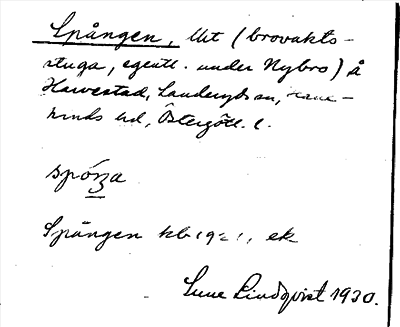 Spången, Ut (brovakts-
stuga, egentl. under Nybro) å
Harvestad, Landeryds sn, Hane-
kinds hd, Östergötl. l.
spóŋa
Spången kb 1921, ek
Sune Lindqvist 1930.